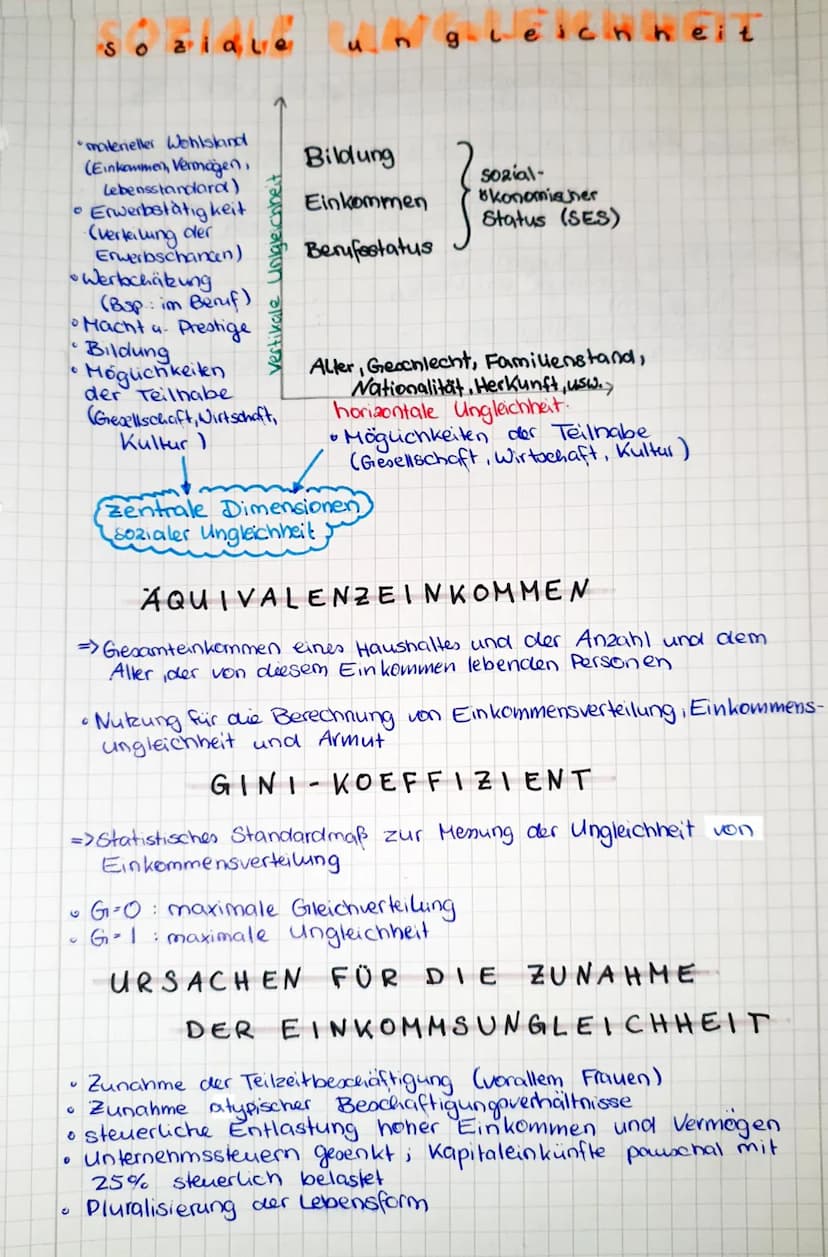 soziale ungleichheit
• materieller Wohlstand
(Einkommen, Vermögen,
Lebensstandard)
• Erwerbstätigkeit
(Verteilung der
Erwerbschancen)
• Wertschätzung
(Bsp: im Beruf)
• Macht u. Prestige
• Bildung
• Möglichkeiten
der Teilhabe
(Gesellschaft, Wirtschaft,
Kultur)
vertikale Ungleichheit
Bildung
Einkommen
Berufsstatus
sozial-
ökonomischer
Status (SES)
Alter, Geschlecht, Familienstand,
Nationalität, Herkunft, usw.
horizontale Ungleichheit
• Möglichkeiten der Teilhabe
(Gesellschaft, Wirtschaft, Kultur)
zentrale Dimensionen
sozialer Ungleichheit
ÄQUIVALENZEINKOMMEN
=> Gesamteinkommen eines Haushaltes und der Anzahl und dem
Alter, der von diesem Einkommen lebenden Personen
• Nutzung für die Berechnung von Einkommensverteilung, Einkommens-
ungleichheit und Armut
GINI-KOEFFIZIENT
=> Statistisches Standardmaß zur Messung der Ungleichheit von
Einkommensverteilung
• G=0 : maximale Gleichverteilung
• G=1 : maximale Ungleichheit
URSACHEN FÜR DIE ZUNAHME
DER EINKOMMSUNGLEICHHEIT
• Zunahme der Teilzeitbeschäftigung (vorallem Frauen)
• Zunahme atypischer Beschäftigungsverhältnisse
• steuerliche Entlastung hoher Einkommen und Vermögen
• Unternehmssteuern gesenkt ; Kapitaleinkünfte pauschal mit
25% steuerlich belastet
• Pluralisierung der Lebensform